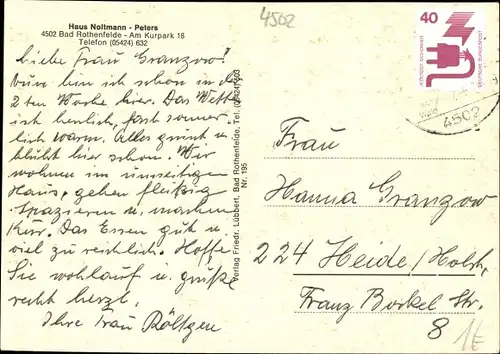 Haus Noltmann - Peters
4502 Bad Rothenfelde - Am Kurpark 16
Telefon (05424) 632
4502
Liebe Frau Granzow!
Nun bin ich schon in d.
2ten Woche hier. Das Wetter
ist herrlich, fast sommer-
lich warm. Alles grünt u.
blüht hier schon. Wir
wohnen im umseitigen
Haus, gehen fleißig
spazieren u. machen
Kur. Das Essen gut u.
viel zu reichlich. Hoffe
Sie wohlauf u. grüße
recht herzl.
Ihre Frau Röltgen
Verlag Friedr. Lübbert, Bad Rothenfelde, Tel. (05424)
Nr. 195
40
DEUTSCHE BUNDESPOST
4502
Frau
Hanna Granzow
224 Heide/Holst.
Franz Borkel Str.
8
1E